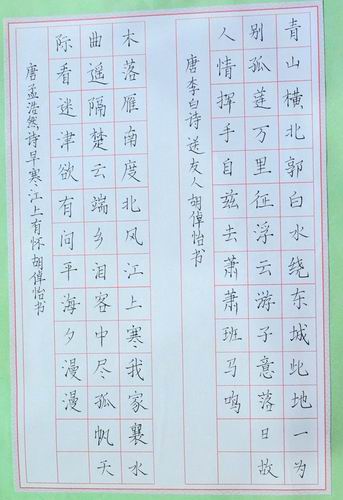 青山横北郭白水绕东城此地一为
别孤蓬万里征浮云游子意落日故
人情挥手自兹去萧萧班马鸣
唐李白诗送友人胡倬怡书
木落雁南度北风江上寒我家襄水
曲遥隔楚云端乡泪客中尽孤帆天
际看迷津欲有问平海夕漫漫
唐孟浩然诗早寒江上有怀胡倬怡书